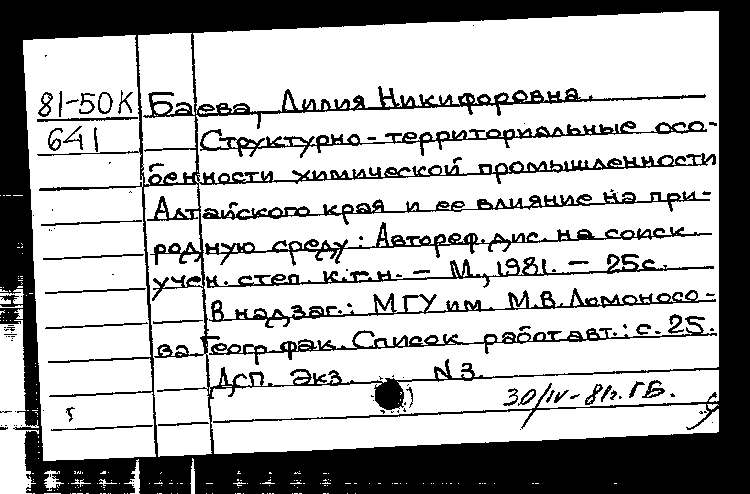 81-50К Баева, Лилия Никифоровна.
641 Структурно-территориальные осо-
бенности химической промышленности
Алтайского края и ее влияние на при-
родную среду: Автореф. дис. на соиск.
учен. степ. к.г.н. – М., 1981. – 25с.
В надзаг.: МГУ им. М.В. Ломоносо-
ва Геогр. фак. Список работ авт.: с. 25.
Дсп. Экз. N 3.
30/IV-81г. ГБ.